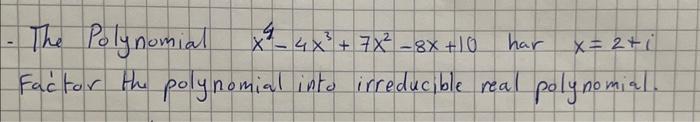 - The Polynomial x⁴ - 4x³ + 7x² - 8x + 10 har x = 2 + i
Factor the polynomial into irreducible real polynomial.